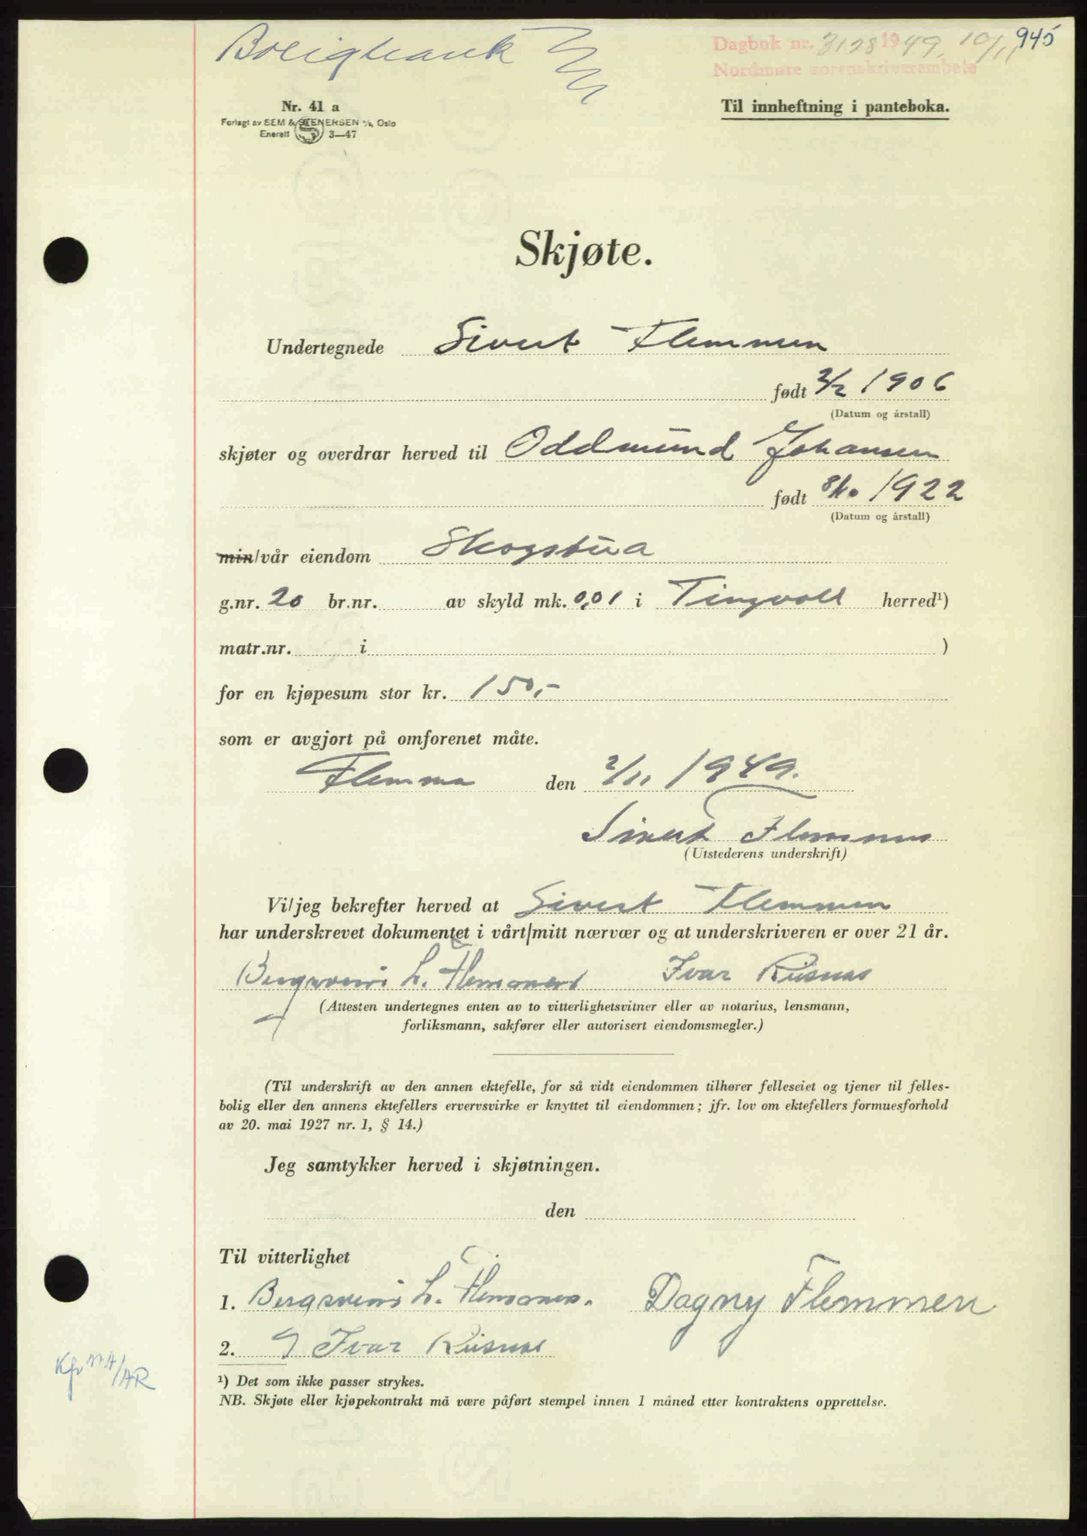 Boligbank
Dagbok nr. 3128 1949. 10/11 945
Nordmøre sorenskriverembete
Nr. 41 a
Forlagt av SEM & STENERSEN A/S, Oslo
Enerett S 3—47
Til innheftning i panteboka.
Skjøte.
Undertegnede Sivert Flemmen
født 2/2 1906
(Datum og årstall)
skjøter og overdrar herved til Oddmund Johansen
født 8/10 1922
(Datum og årstall)
min/vår eiendom Skogstua
g.nr. 20 br.nr. av skyld mk. 0,01 i Tingvoll herred¹)
matr.nr. i )
for en kjøpesum stor kr. 150,-
som er avgjort på omforenet måte.
Flemma den 2/11 1949.
Sivert Flemmen
(Utstederens underskrift)
Vi/jeg bekrefter herved at Sivert Flemmen
har underskrevet dokumentet i vårt/mitt nærvær og at underskriveren er over 21 år.
Bergsveini L. Flemmen Ivar Rusnes
(Attesten undertegnes enten av to vitterlighetsvitner eller av notarius, lensmann,
forliksmann, sakfører eller autorisert eiendomsmegler.)
(Til underskrift av den annen ektefelle, for så vidt eiendommen tilhører felleseiet og tjener til felles-
bolig eller den annens ektefellers ervervsvirke er knyttet til eiendommen; jfr. lov om ektefellers formuesforhold
av 20. mai 1927 nr. 1, § 14.)
Jeg samtykker herved i skjøtningen.
den
Til vitterlighet
1. Bergsveini L. Flemmen. Dagny Flemmen
2. Ivar Rusnes
¹) Det som ikke passer strykes.
NB. Skjøte eller kjøpekontrakt må være påført stempel innen 1 måned etter kontraktens opprettelse.